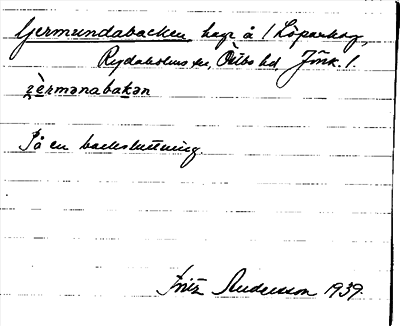 Germundabacken, hage å 1 Loparkog,
Rydaholms sn, Östbo hd, Jönk. l.
jèrmənabakən
På en backsluttning.
Fritz Andersson 1939.